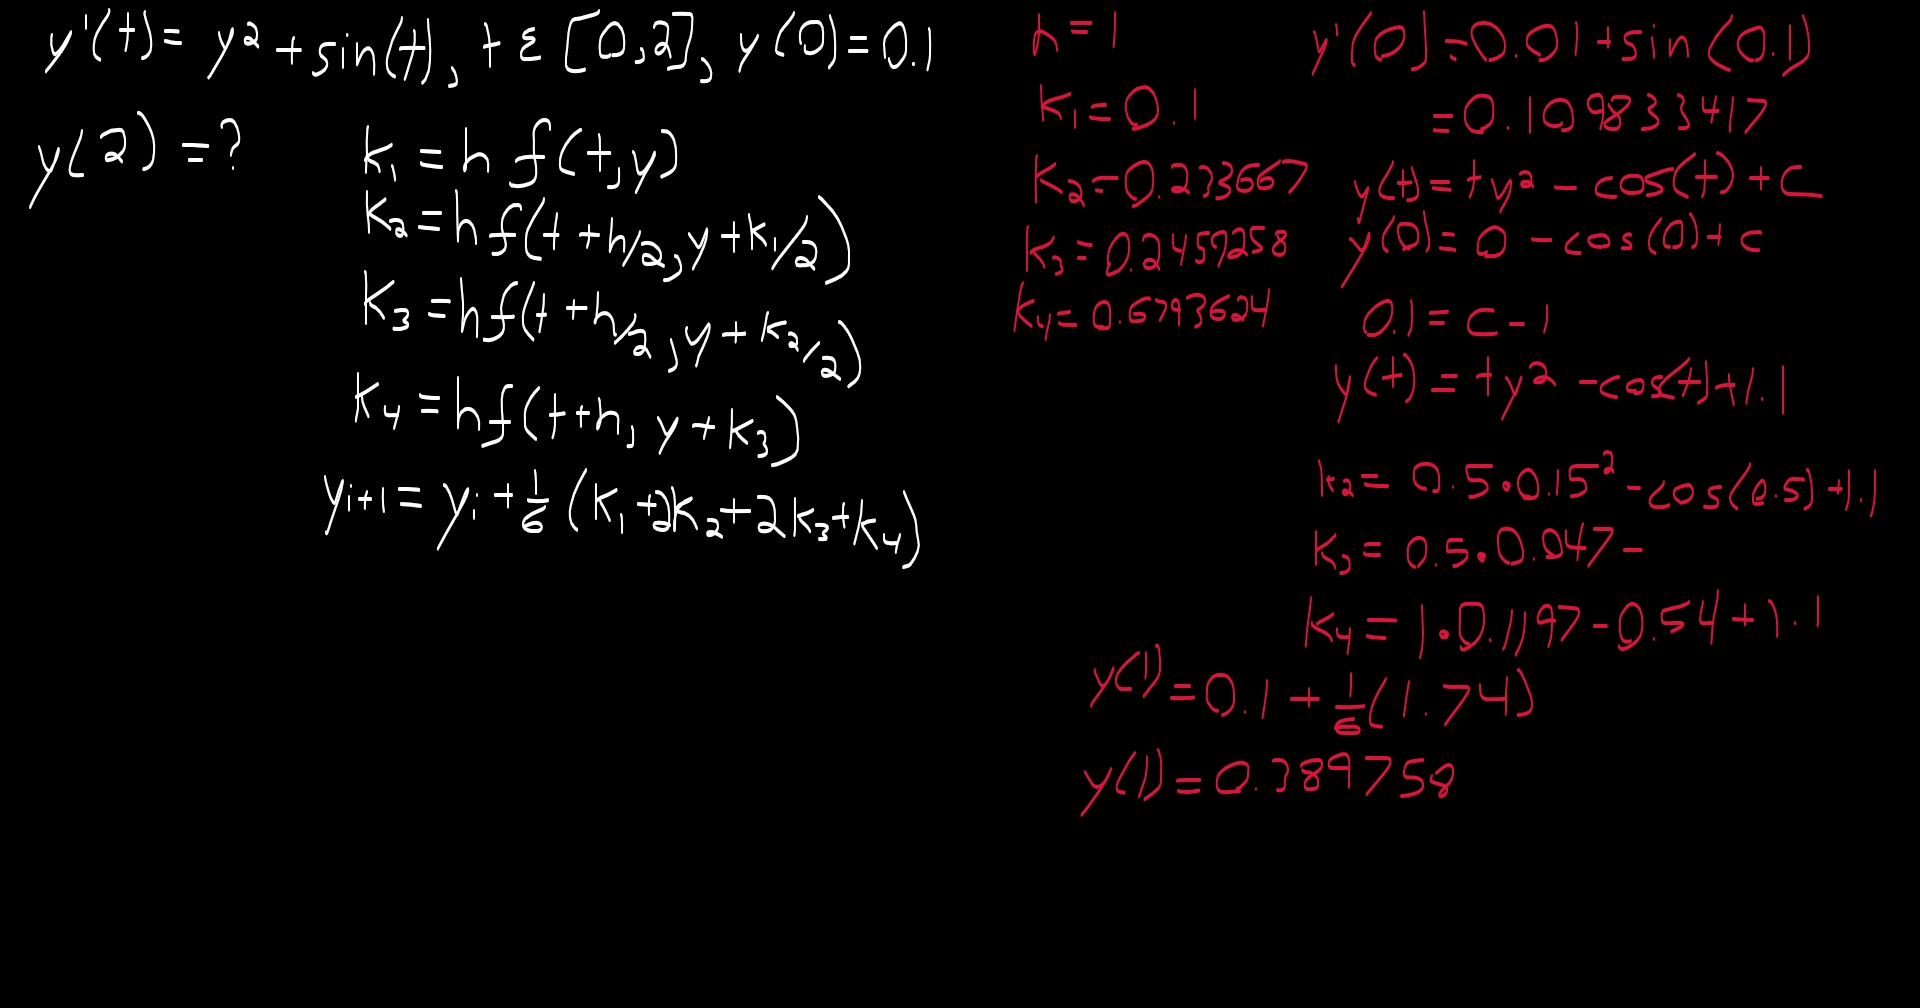 y'(t) = y² + sin(t), t ε [0,2], y(0) = 0.1
y(2) = ?
k₁ = h f(t,y)
k₂ = h f(t + h/2, y + k₁/2)
k₃ = h f(t + h/2, y + k₂/2)
k₄ = h f(t + h, y + k₃)
yᵢ₊₁ = yᵢ + 1/6 (k₁ + 2k₂ + 2k₃ + k₄)
h = 1
k₁ = 0.1
k₂ = 0.233667
k₃ = 0.2457258
k₄ = 0.6793624
y'(0) = 0.01 + sin(0.1)
= 0.109833417
y(t) = ty² - cos(t) + c
y(0) = 0 - cos(0) + c
0.1 = c - 1
y(t) = ty² - cos(t) + 1.1
k₂ = 0.5•0.15² - cos(0.5) + 1.1
k₃ = 0.5•0.047 -
k₄ = 1•0.1197 - 0.54 + 1.1
y(1) = 0.1 + 1/6 (1.74)
y(1) = 0.389758